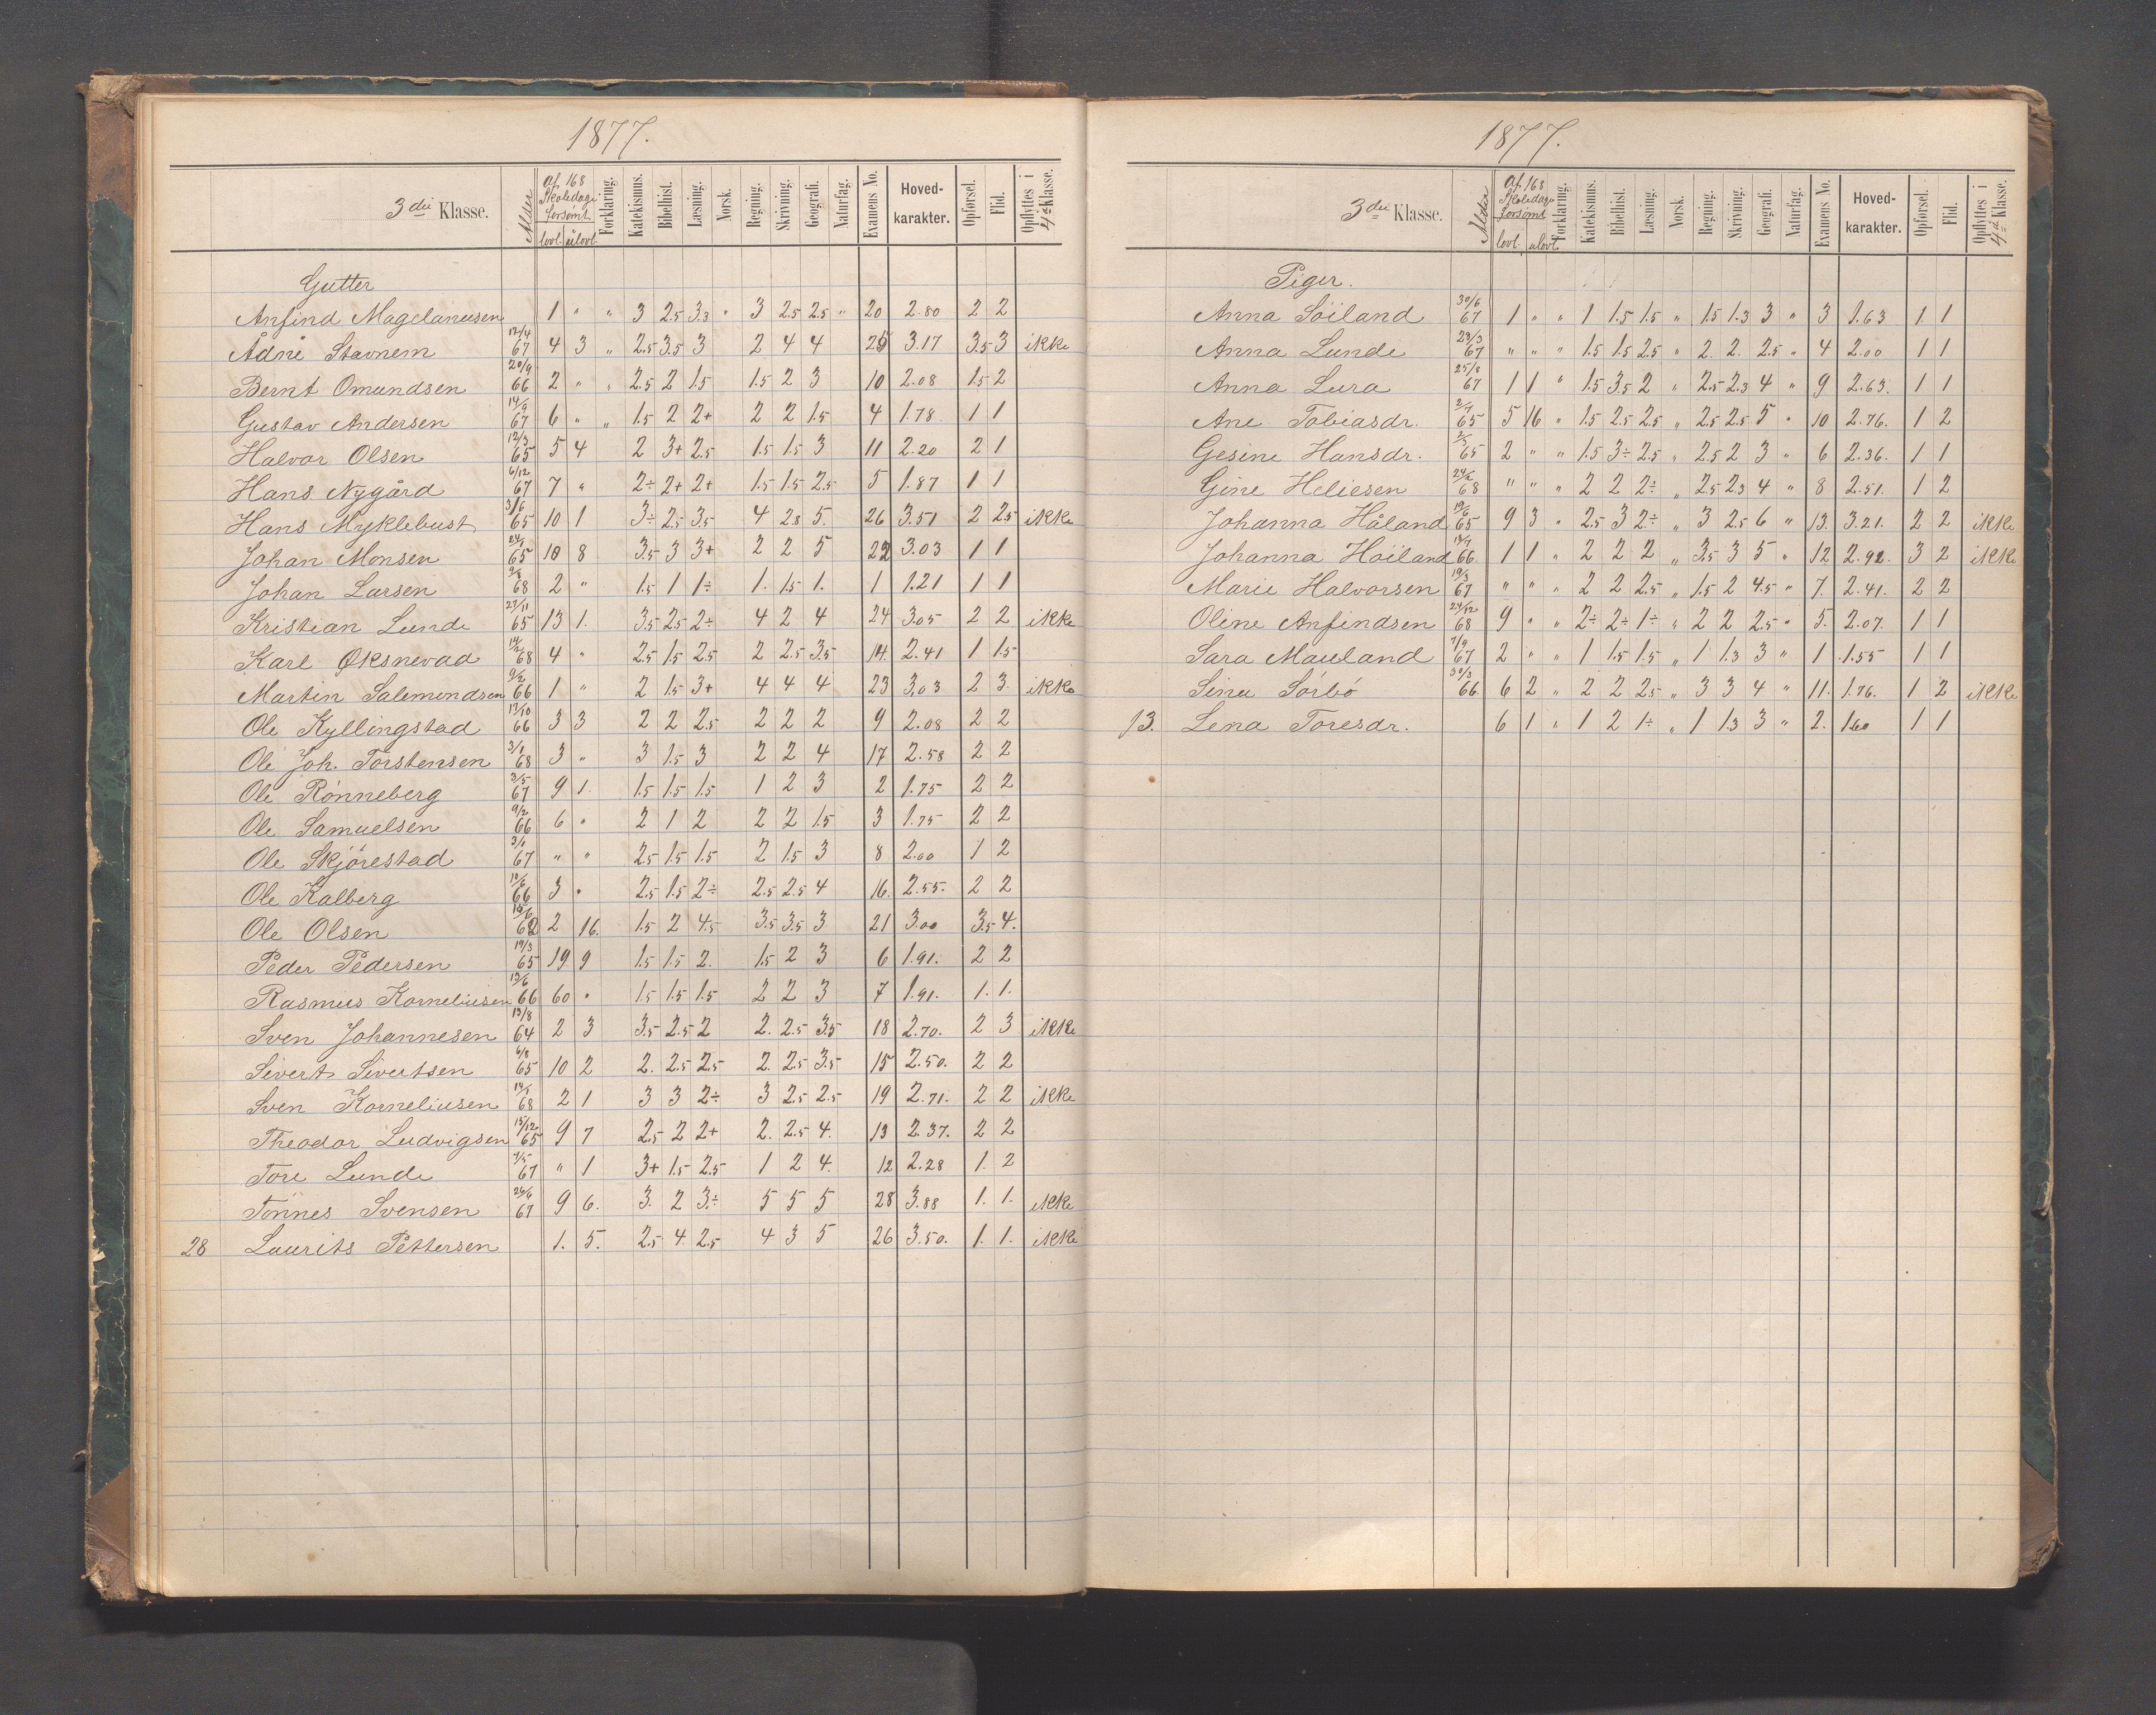 1877.
3die Klasse. Alder Af 168 Skoledage forsømt lovl. ulovl. Forklaring. Katekismus. Bibelhist. Læsning. Norsk. Regning. Skrivning. Geografi. Naturfag. Examens No. Hoved-karakter. Opførsel. Flid. Opflyttes i 4de Klasse.
Gutter
Anfind Magelanusen 1 " " 3 2.5 3.3 " 3 2.5 2.5 " 20 2.80 2 2
Ådne Stavnem 12/4 67 4 3 " 2.5 3.5 3 2 4 4 25 3.17 3.5 3 ikke
Bernt Omundsen 20/9 66 2 " " 2.5 2 1.5 1.5 2 3 10 2.08 1.5 2
Gustav Andersen 14/9 67 6 " " 1.5 2 2+ 2 2 1.5 4 1.78 1 1
Halvor Olsen 12/3 65 5 4 2 3+ 2.5 1.5 1.5 3 11 2.20 2 1
Hans Nygård 6/12 67 7 " 2÷ 2+ 2+ 1.5 1.5 2.5 5 1.87 1 1
Hans Myklebust 3/6 65 10 1 3÷ 2.5 3.5 4 2.8 5. 26 3.51 2 2.5 ikke
Johan Monsen 24/1 65 10 8 3.5 3 3+ 2 2 5 22 3.03 1 1
Johan Larsen 68 2 " 1.5 1 1÷ 1. 1.5 1. 1 1.21 1 1
Kristian Lunde 27/11 65 13 1. 3.5 2.5 2÷ 4 2 4 24 3.05 2 2 ikke
Karl Øksnevad 14/2 68 4 " 2.5 1.5 2.5 2 2.5 3.5 14. 2.41 1 1.5
Martin Salemondsen 9/2 66 1 " 2 1.5 3+ 4 4 4 23 3.03 2 3. ikke
Ole Kyllingstad 13/10 66 3 3 2 2 2.5 2 2 2 9 2.08 2 2
Ole Joh. Torstensen 3/1 68 3 " 3 1.5 3 2 2 4 17 2.58 2 2
Ole Rönneberg 3/5 67 9 1. 1.5 1.5 1.5 1 2 3 2 1.75 2 2
Ole Samuelsen 9/2 66 6 " 2 1 2 2 2 1.5 3 1.75 2 2
Ole Skjörestad 3/1 67 " " 2.5 1.5 1.5 2 1.5 3 8 2.00 1 2
Ole Kalberg 10/6 66 3 " 2.5 1.5 2÷ 2.5 2.5 4 16. 2.55. 2 2
Ole Olsen 2 16. 1.5 2 4.5 3.5 3.5 3 21 3.00 3.5 4.
Peder Pedersen 19/3 65 19 9 1.5 1.5 2. 1.5 2 3 6 1.91. 2 2
Rasmus Korneliusen 13/6 66 60 " 1.5 1.5 1.5 2 2 3 7 1.91. 1. 1.
Sven Johannesen 13/8 64 2 3 3.5 2.5 2 2. 2.5 3.5 18 2.70. 2 3 ikke
Sivert Sivertsen 6/8 65 10 2 2. 2.5 2.5 2. 2.5 3.5 15 2.50. 2 2
Sven Korneliusen 14/1 68 2 1 3 3 2÷ 3 2.5 2.5 19 2.71. 2 2 ikke
Theodor Ludvigsen 15/12 65 9 7 2.5 2 2+ 2. 2.5 4. 13 2.37. 2 2
Tore Lunde 7/5 67 " 1 3+ 1.5 2.5 1 2 4. 12 2.28 1. 2
Tönnes Svensen 26/6 67 9 6. 3. 2 3÷ 5 5 5 28 3.88 1. 1. ikke
28 Laurits Pettersen 1. 5. 2.5 4. 2.5 4 3 5 26 3.50. 1. 1. ikke
1877.
3die Klasse. Alder Af 168 Skoledage forsømt lovl. ulovl. Forklaring. Katekismus. Bibelhist. Læsning. Norsk. Regning. Skrivning. Geografi. Naturfag. Examens No. Hoved-karakter. Opførsel. Flid. Opflyttes i 4de Klasse.
Piger.
Anna Söiland 30/6 67 1 " " 1 1.5 1.5 " 1.5 1.3 3 " 3 1.63 1. 1
Anna Lunde 23/3 67 " " " 1.5 1.5 2.5 " 2. 2. 2.5 " 4 2.00 1 1
Anna Lura 25/8 67 1 1 " 1.5 3.5 2 " 2.5 2.3 4 " 9 2.63. 1 1
Ane Tobiasdr. 2/7 65 5 16 " 1.5 2.5 2.5 " 2.5 2.5 5 " 10 2.76. 1 2
Gesine Hansdr. 2/3 65 2 " " 1.5 3÷ 2.5 " 2.5 2 3 " 6 2.36. 1 1
Gine Heliesen 24/2 68 " " " 2 2 2÷ " 2.5 2.3 4 " 8 2.51. 1 2
Johanna Håland 19/6 65 9 3 " 2.5 3 2÷ " 3 2.5 6 " 13. 3.21. 2 2 ikke
Johanna Höiland 13/7 66 1 1 " 2 2 2 " 3.5 3 5 " 12 2.92. 3 2 ikke
Marie Halvorsen 19/3 67 " " " 2 2 2.5 " 1.5 2 4.5 " 7. 2.41. 2 2
Oline Anfindsen 24/12 68 9 " " 2÷ 2÷ 1÷ " 2 2 2.5 " 5. 2.07. 1 1
Sara Mauland 7/9 67 2 " " 1 1.5 1.5 " 1 1.3 3 " 1 1.55 1 1
Sina Sörbö 30/3 66 6 2 " 2 2 2.5 " 3 3 4 " 11. 1.76. 1 2 ikke
13. Lena Toresdr. 6 1 " 1 2 1÷ " 1 1.3 3 " 2. 1.60 1 1